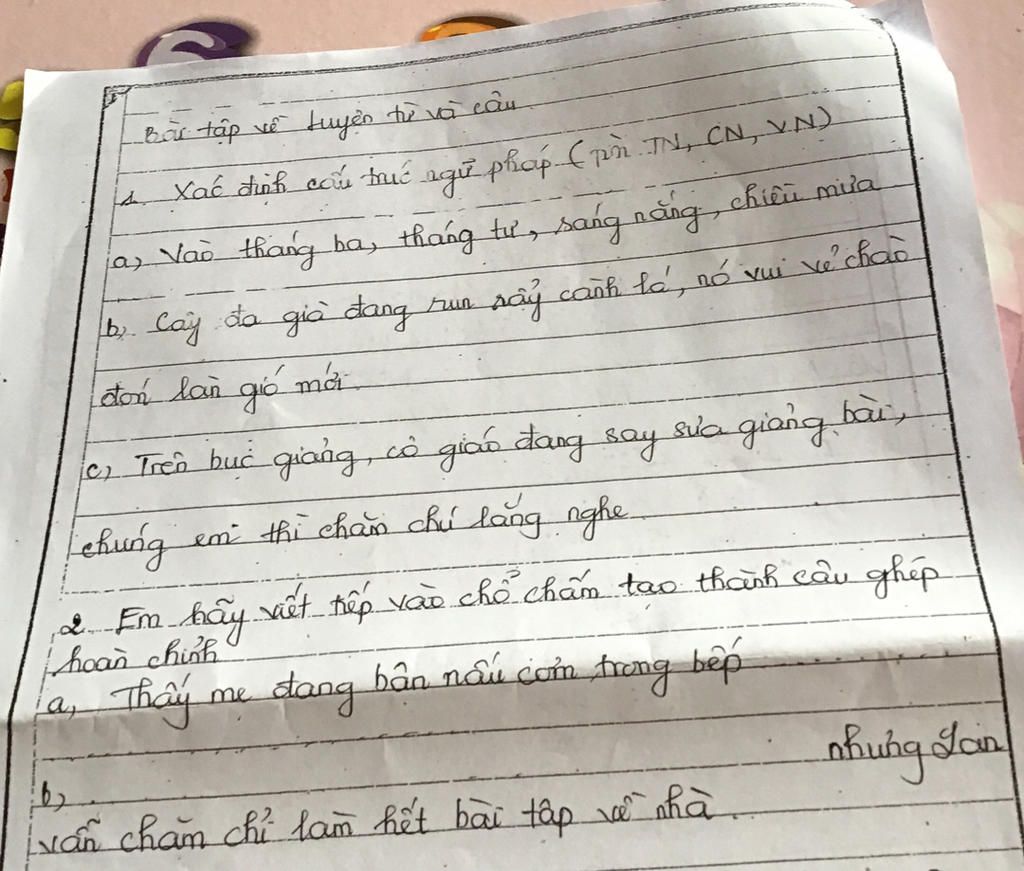 Bài tập về luyện từ và câu
1. Xác định cấu trúc ngữ pháp (tìm TN, CN, VN)
a, Vào tháng ba, tháng tư, sáng nắng, chiều mưa
b, Cây đa già đang run rẩy cành lá, nó vui vẻ chào
đón làn gió mới.
c, Trên bục giảng, cô giáo đang say sưa giảng bài,
chúng em thì chăm chú lắng nghe
2. Em hãy viết tiếp vào chỗ chấm tạo thành câu ghép
hoàn chỉnh
a, Thấy mẹ đang bận nấu cơm trong bếp ............
b, ............ nhưng Lan
vẫn chăm chỉ làm hết bài tập về nhà.